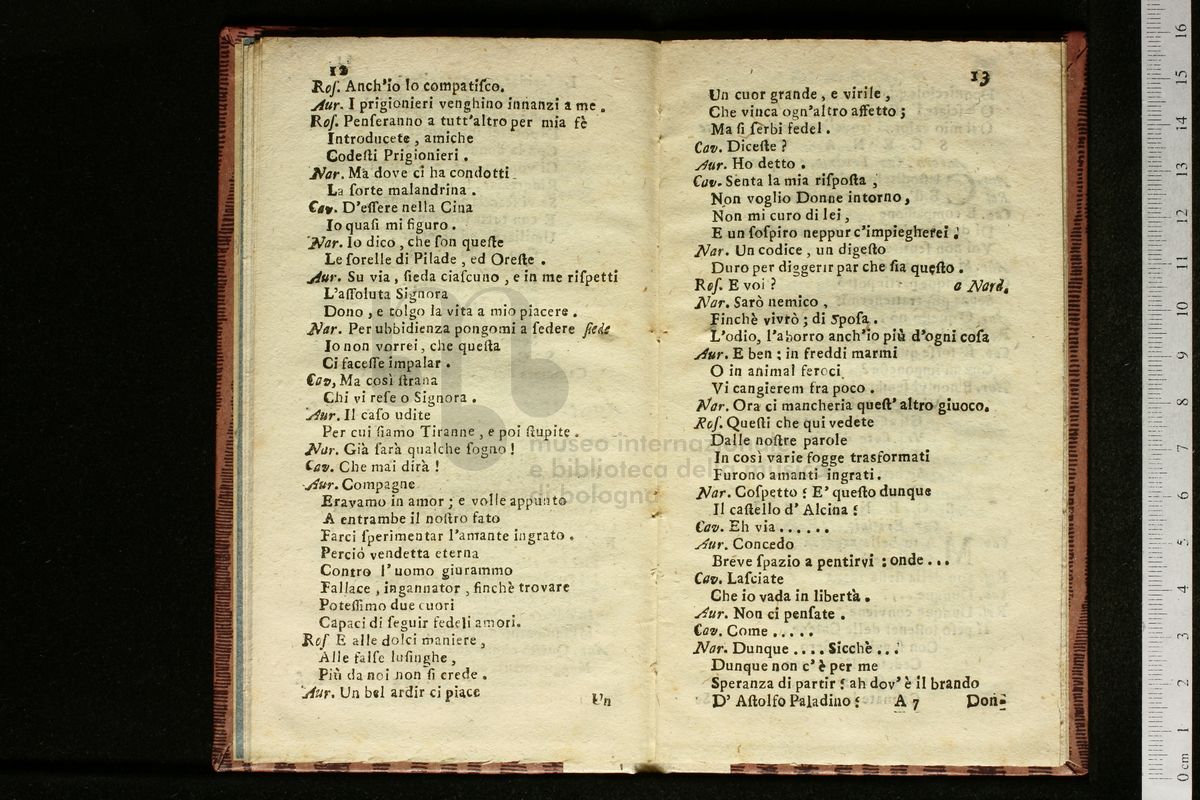 12
Roſ. Anch'io lo compatiſco.
Aur. I prigionieri venghino innanzi a me.
Roſ. Penſeranno a tutt'altro per mia fè
Introducete, amiche
Codeſti Prigionieri.
Nar. Ma dove ci ha condotti
La ſorte malandrina.
Cav. D'eſſere nella Cina
Io quaſi mi figuro.
Nar. Io dico, che ſon queſte
Le ſorelle di Pilade, ed Oreſte.
Aur. Su via, ſieda ciaſcuno, e in me riſpetti
L'aſſoluta Signora
Dono, e tolgo la vita a mio piacere.
Nar. Per ubbidienza pongomi a ſedere ſiede
Io non vorrei, che queſta
Ci faceſſe impalar.
Cav, Ma così ſtrana
Chi vi reſe o Signora.
Aur. Il caſo udite
Per cui ſiamo Tiranne, e poi ſtupite.
Nar. Già ſarà qualche ſogno!
Cav. Che mai dirà!
Aur. Compagne
Eravamo in amor; e volle appunto
A entrambe il noſtro fato
Farci ſperimentar l'amante ingrato.
Perciò vendetta eterna
Contro l'uomo giurammo
Fallace, ingannator, finchè trovare
Poteſſimo due cuori
Capaci di ſeguir fedeli amori.
Roſ E alle dolci maniere,
Alle falſe luſinghe,
Più da noi non ſi crede.
Aur. Un bel ardir ci piace
Un
13
Un cuor grande, e virile,
Che vinca ogn'altro affetto;
Ma ſi ſerbi fedel.
Cav. Diceſte?
Aur. Ho detto.
Cav. Senta la mia riſpoſta,
Non voglio Donne intorno,
Non mi curo di lei,
E un ſoſpiro neppur c'impiegherei!
Nar. Un codice, un digeſto
Duro per diggerir par che ſia queſto.
Roſ. E voi? a Nard.
Nar. Sarò nemico,
Finchè vivrò; di Spoſa.
L'odio, l'aborro anch'io più d'ogni coſa
Aur. E ben; in freddi marmi
O in animal feroci
Vi cangierem fra poco.
Nar. Ora ci mancheria queſt' altro giuoco.
Roſ. Queſti che qui vedete
Dalle noſtre parole
In così varie fogge trasformati
Furono amanti ingrati.
Nar. Coſpetto! E' queſto dunque
Il caſtello d' Alcina?
Cav. Eh via......
Aur. Concedo
Breve ſpazio a pentirvi; onde...
Cav. Laſciate
Che io vada in libertà.
Aur. Non ci penſate.
Cav. Come.....
Nar. Dunque .... Sicchè ...
Dunque non c'è per me
Speranza di partir? ah dov'è il brando
D' Aſtolfo Paladino? A 7 Don-
museo internazionale
e biblioteca della musica
di bologna
0 cm 1 2 3 4 5 6 7 8 9 10 11 12 13 14 15 16